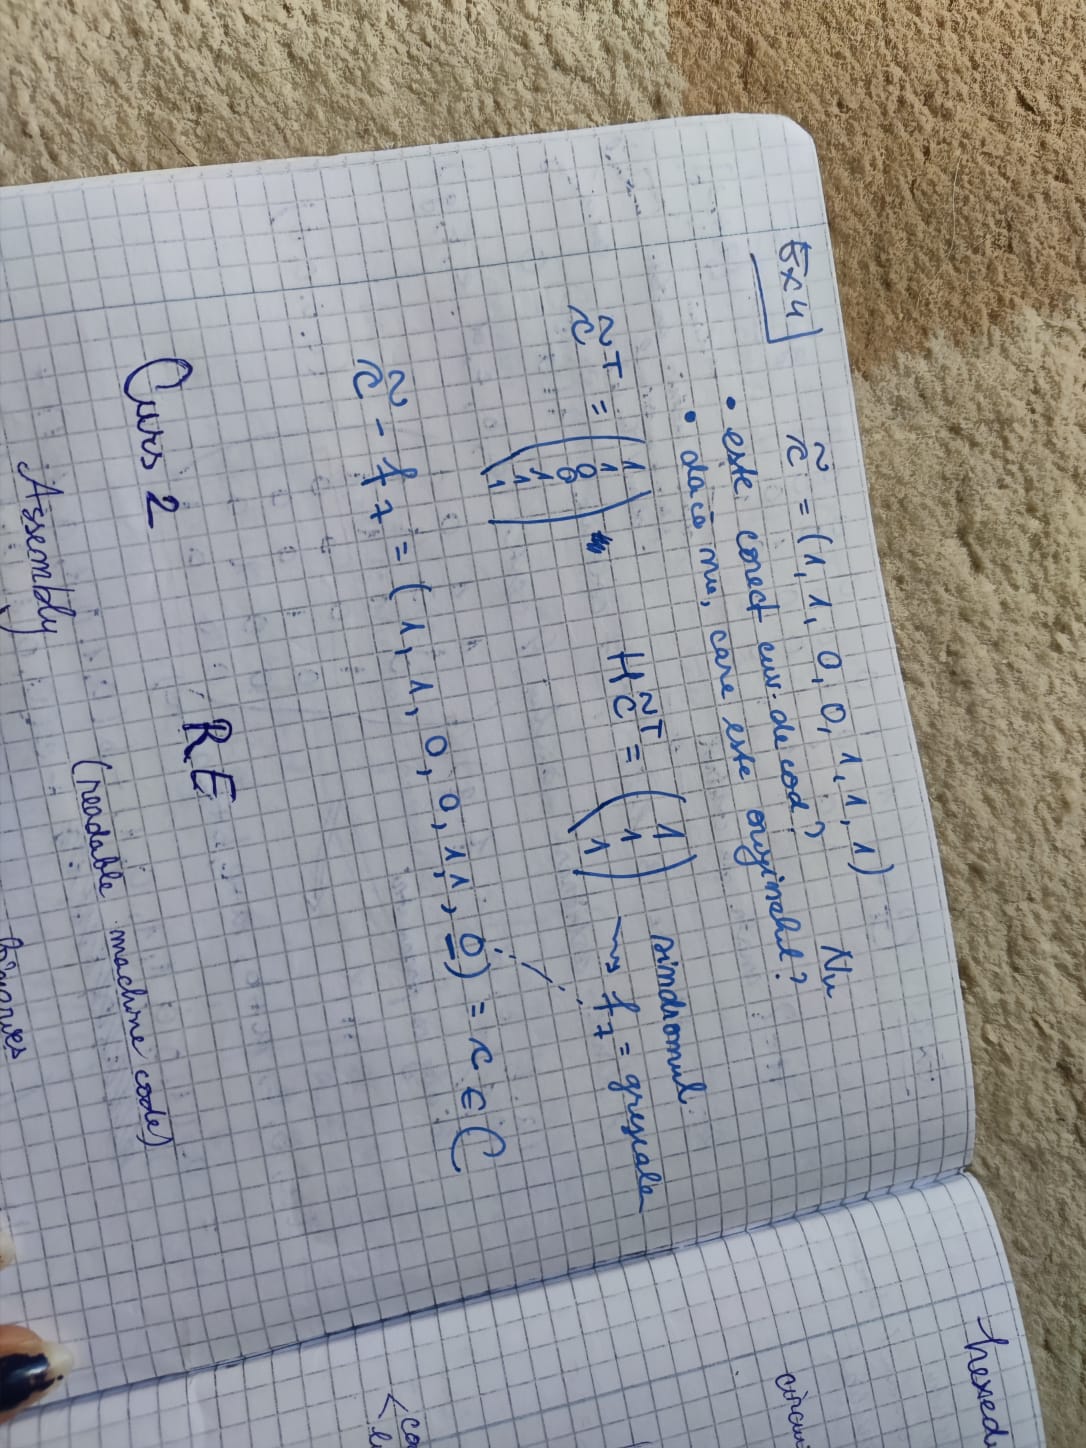 Ex4 c̃ = (1, 1, 0, 0, 1, 1, 1)
• este corect cuv. de cod? Nu
• dacă nu, care este originalul?
c̃ᵀ = (1 1 0 0 1 1 1) H c̃ᵀ = (1 1 1) sindromul
⇝ f₇ = greșeala
c̃ - f₇ = (1, 1, 0, 0, 1, 1, 0) = c ∈ C
Curs 2 RE
Assembly (readable machine code)
Binaries
hexed
circui